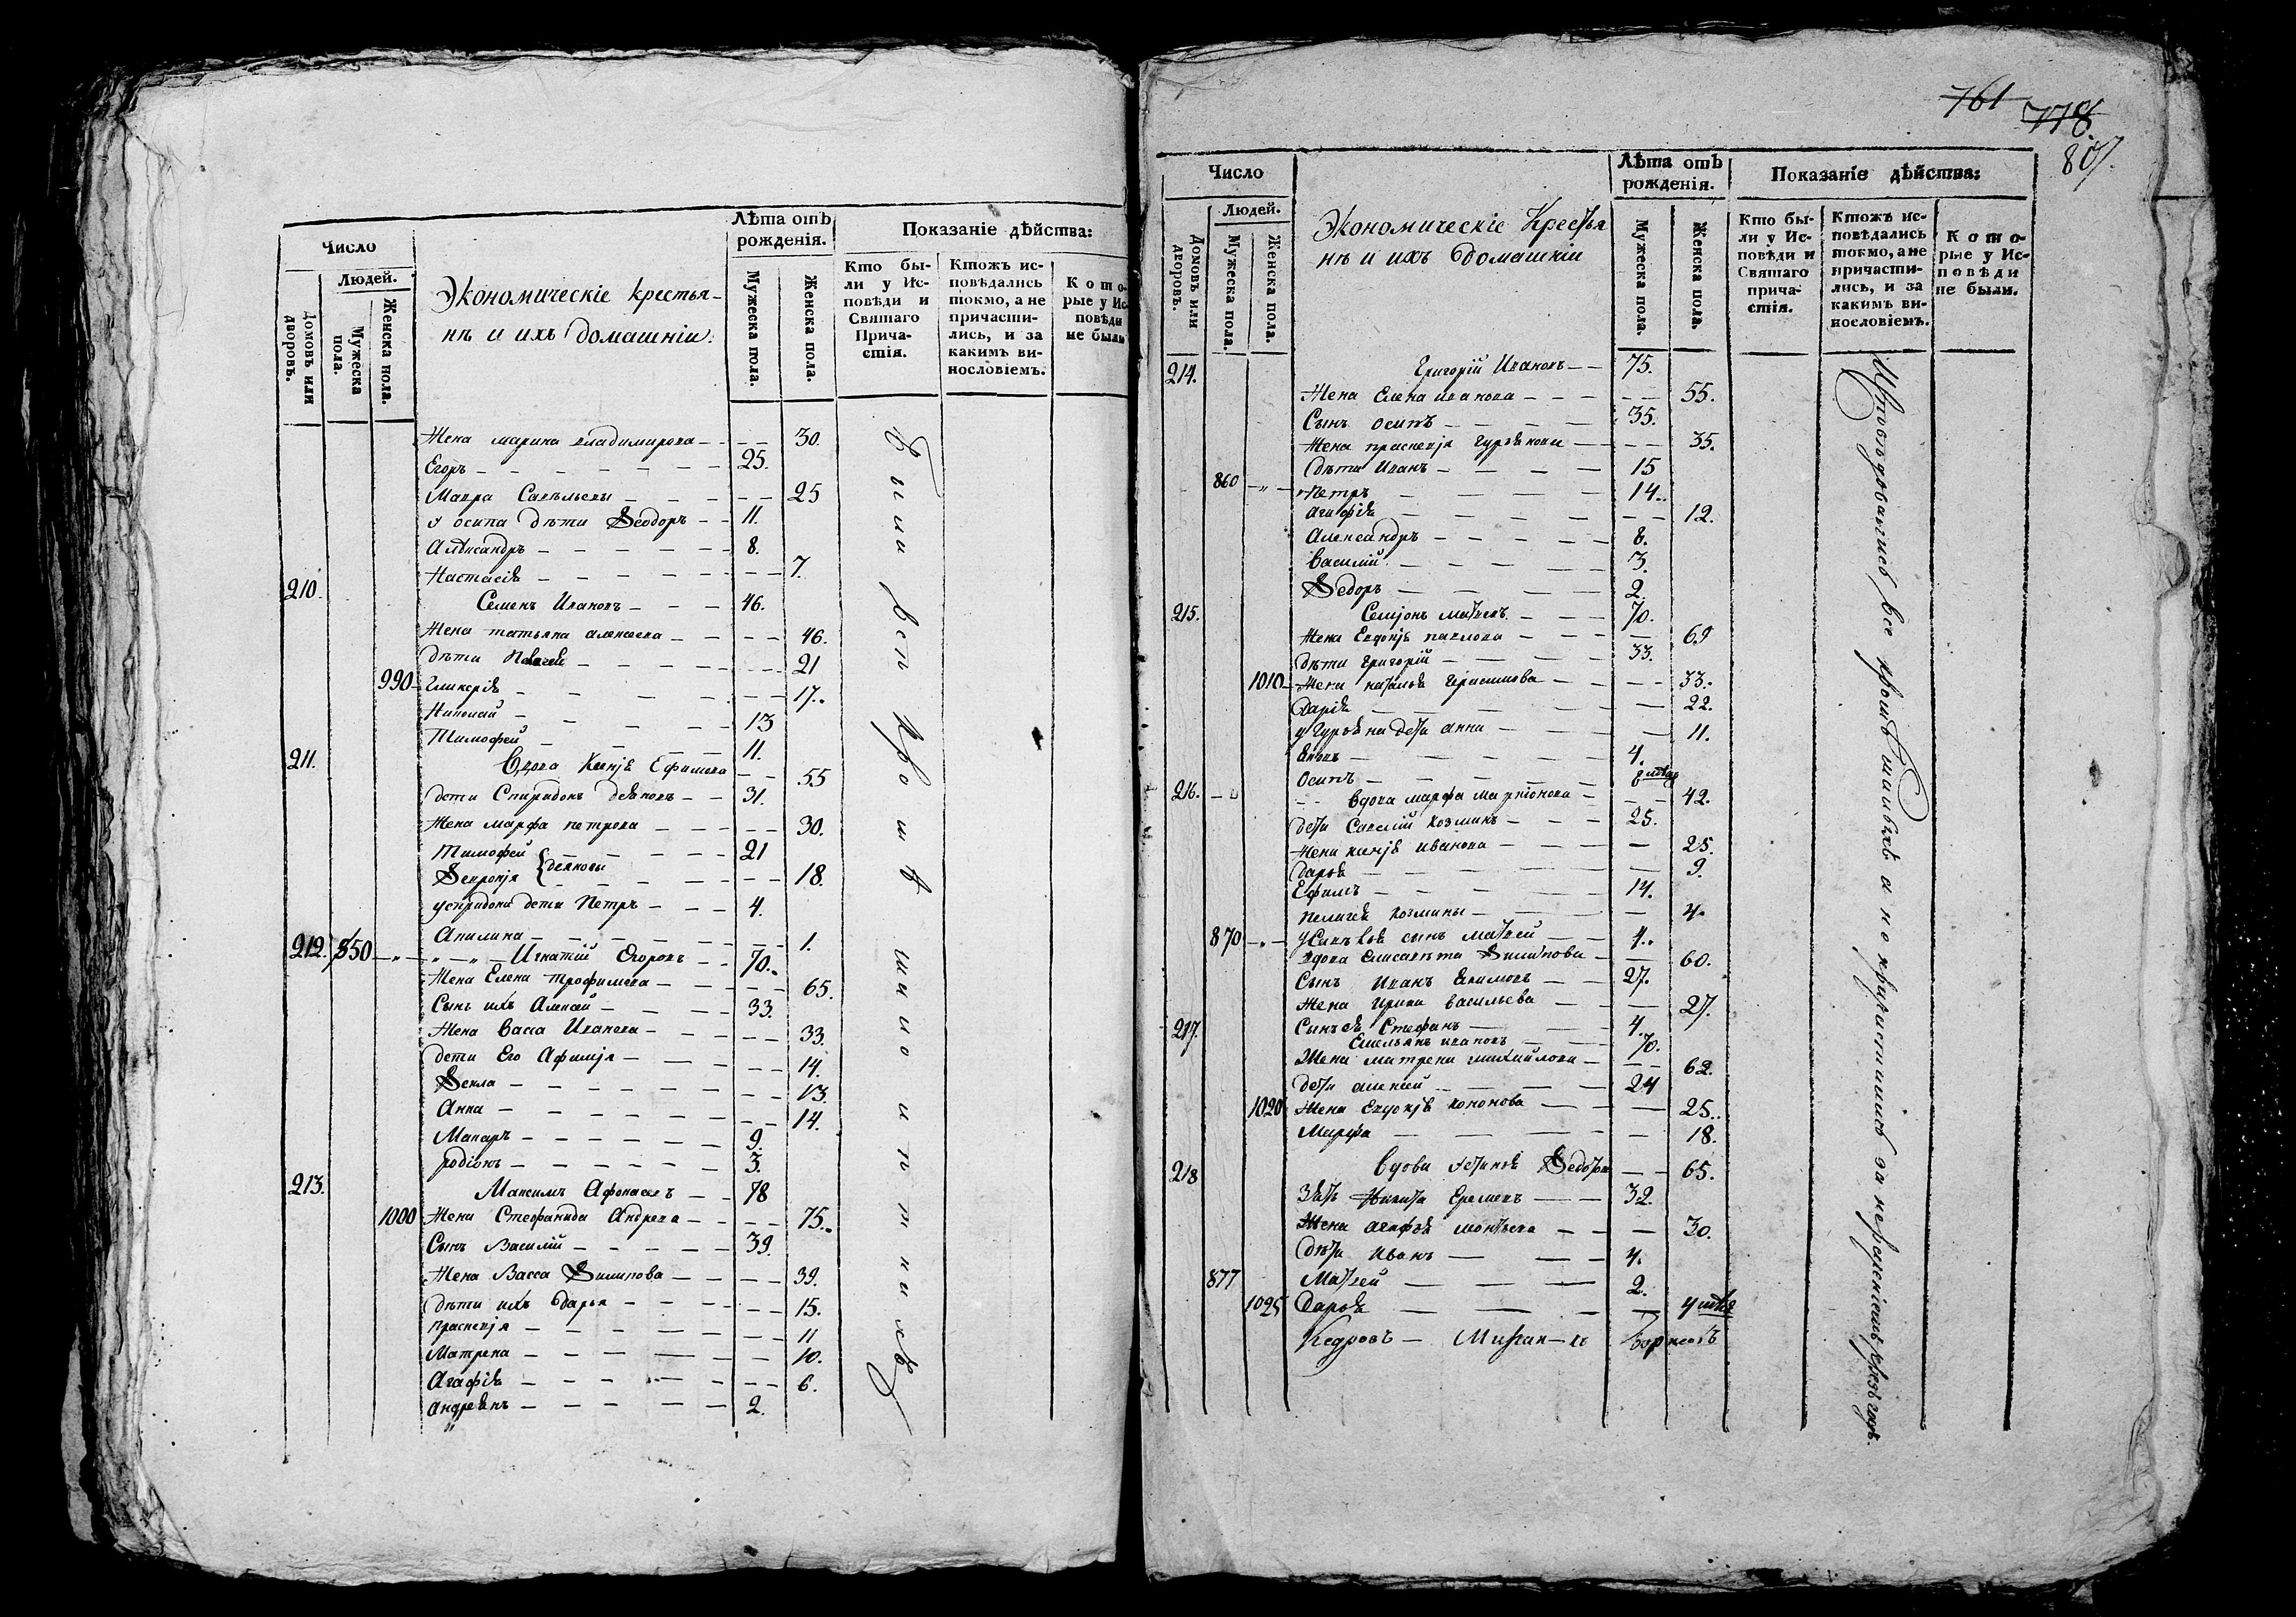 Число
Людей.
Домовъ или дворовъ.
Мужеска пола.
Женска пола.
Экономическіе крестья-
нѣ и ихъ домашніи.
Лѣта отъ рожденія.
Мужеска пола.
Женска пола.
Показаніе дѣйства:
Кто бы-
ли у Ис-
повѣди и
Святаго
Прича-
стія.
Ктожъ ис-
повѣдались
токмо, а не
причасти-
лись, и за
какимъ ви-
нословіемъ.
Кото-
рые у Ис-
повѣди
не были
Жена марина владимирова 30.
Егоръ 25.
Мавра Савельевы 25
у осипа дѣти Ѳеодоръ 11.
Алѣксандръ 8.
Настасіѧ 7.
210. Семенъ Ивановъ 46.
Жена татьяна алексеева 46.
дѣти 21
990 Гликеріѧ 17.
Николай 13
Тимофей 11.
211. Вдова Ксенія Ефимова 55
дети Спиридонъ 31.
Жена марфа петрова 30.
Тимофей 21
Ѳевронія 18.
успиридона дети Петръ 4.
Акилина 1.
212. 850 Игнатій Егоровъ 70.
Жена Елена трофимова 65.
Сынъ ихъ Алексей 33.
Жена Васса Иванова 33.
дети Его Афимія 14.
Ѳекла 13.
Анна 14.
Макаръ 9.
родіонъ 3.
213. Максимъ Афонасевъ 78
1000 Жена Стефанида Андрева 75.
Сынъ Василій 39.
Жена Васса Ѳилипова 39.
дѣти ихъ дарья 15.
прасковія 11
Матрена 10.
Агафіѧ 6.
андреѧнъ 2.
Были вси кромѣ
761
778
807.
Число
Людей.
Домовъ или дворовъ.
Мужеска пола.
Женска пола.
Экономическіе Крестья
нѣ и ихъ домашніи
Лѣта отъ рожденія.
Мужеска пола.
Женска пола.
Показаніе дѣйства:
Кто бы-
ли у Ис-
повѣди и
Святаго
прича-
стія.
Ктожъ ис-
повѣдались
токмо, а не
причасти-
лись, и за
какимъ ви-
нословіемъ.
Кото-
рые у Ис-
повѣди
не были.
214. Григорій Ивановъ 75.
Жена Елена иванова 55.
Сынъ осипъ 35.
Жена прасковія гурѧнова 35.
Дѣти Иванъ 15
860 Петръ 14.
агафіѧ 12.
Александръ 8.
Василій 3.
Ѳедоръ 2.
215. Семіонъ матвеевъ 70.
Жена Евдокія павлова 69
дѣти григорій 33.
1010 Жена наталья герасимова 33.
Даріѧ 22.
дети анна 11.
ѧковъ 4.
Осипъ
216. вдова марфа 42.
дети Савелій козминъ 25.
Жена ксеніѧ иванова 25.
дарьѧ 9.
Ефимъ 14.
пелагеѧ козмины 4.
870 сынъ матвей 4.
вдова Елисавета Ѳилипова 60.
Сынъ Иванъ ѧкимовъ 27.
Жена Ирина васильева 27.
Сынъ Стефанъ 4.
217. Емельянъ ивановъ 70.
Жена матрена михайлова 62.
дети алексей 24
1020 Жена Евдокіѧ кононова 25.
Марфа 18.
218 вдова устинья Ѳедотова 65.
зять Никита Еремеевъ 32.
Жена агафьѧ 30.
дѣти иванъ 4.
877 Матвей 2.
1025 Дарьѧ
Исповѣдовались все кромѣ малыхъ а не причастились за нерадѣніемъ